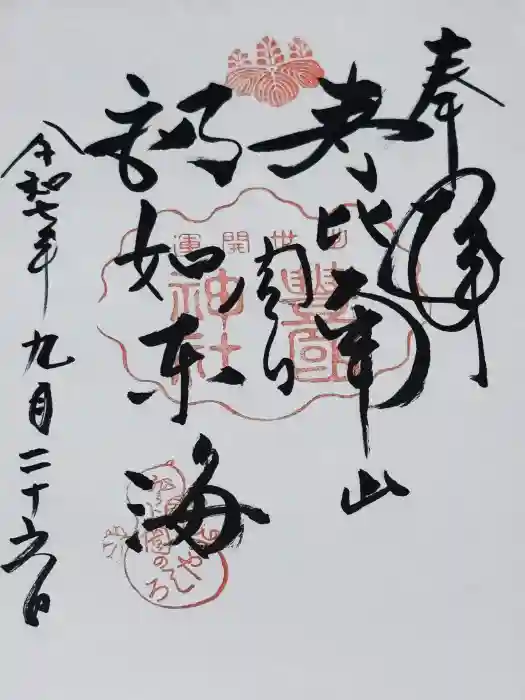 奉拝
寿比南山
福如東海
令和七年九月二十六日
出世開運
豐國
神社